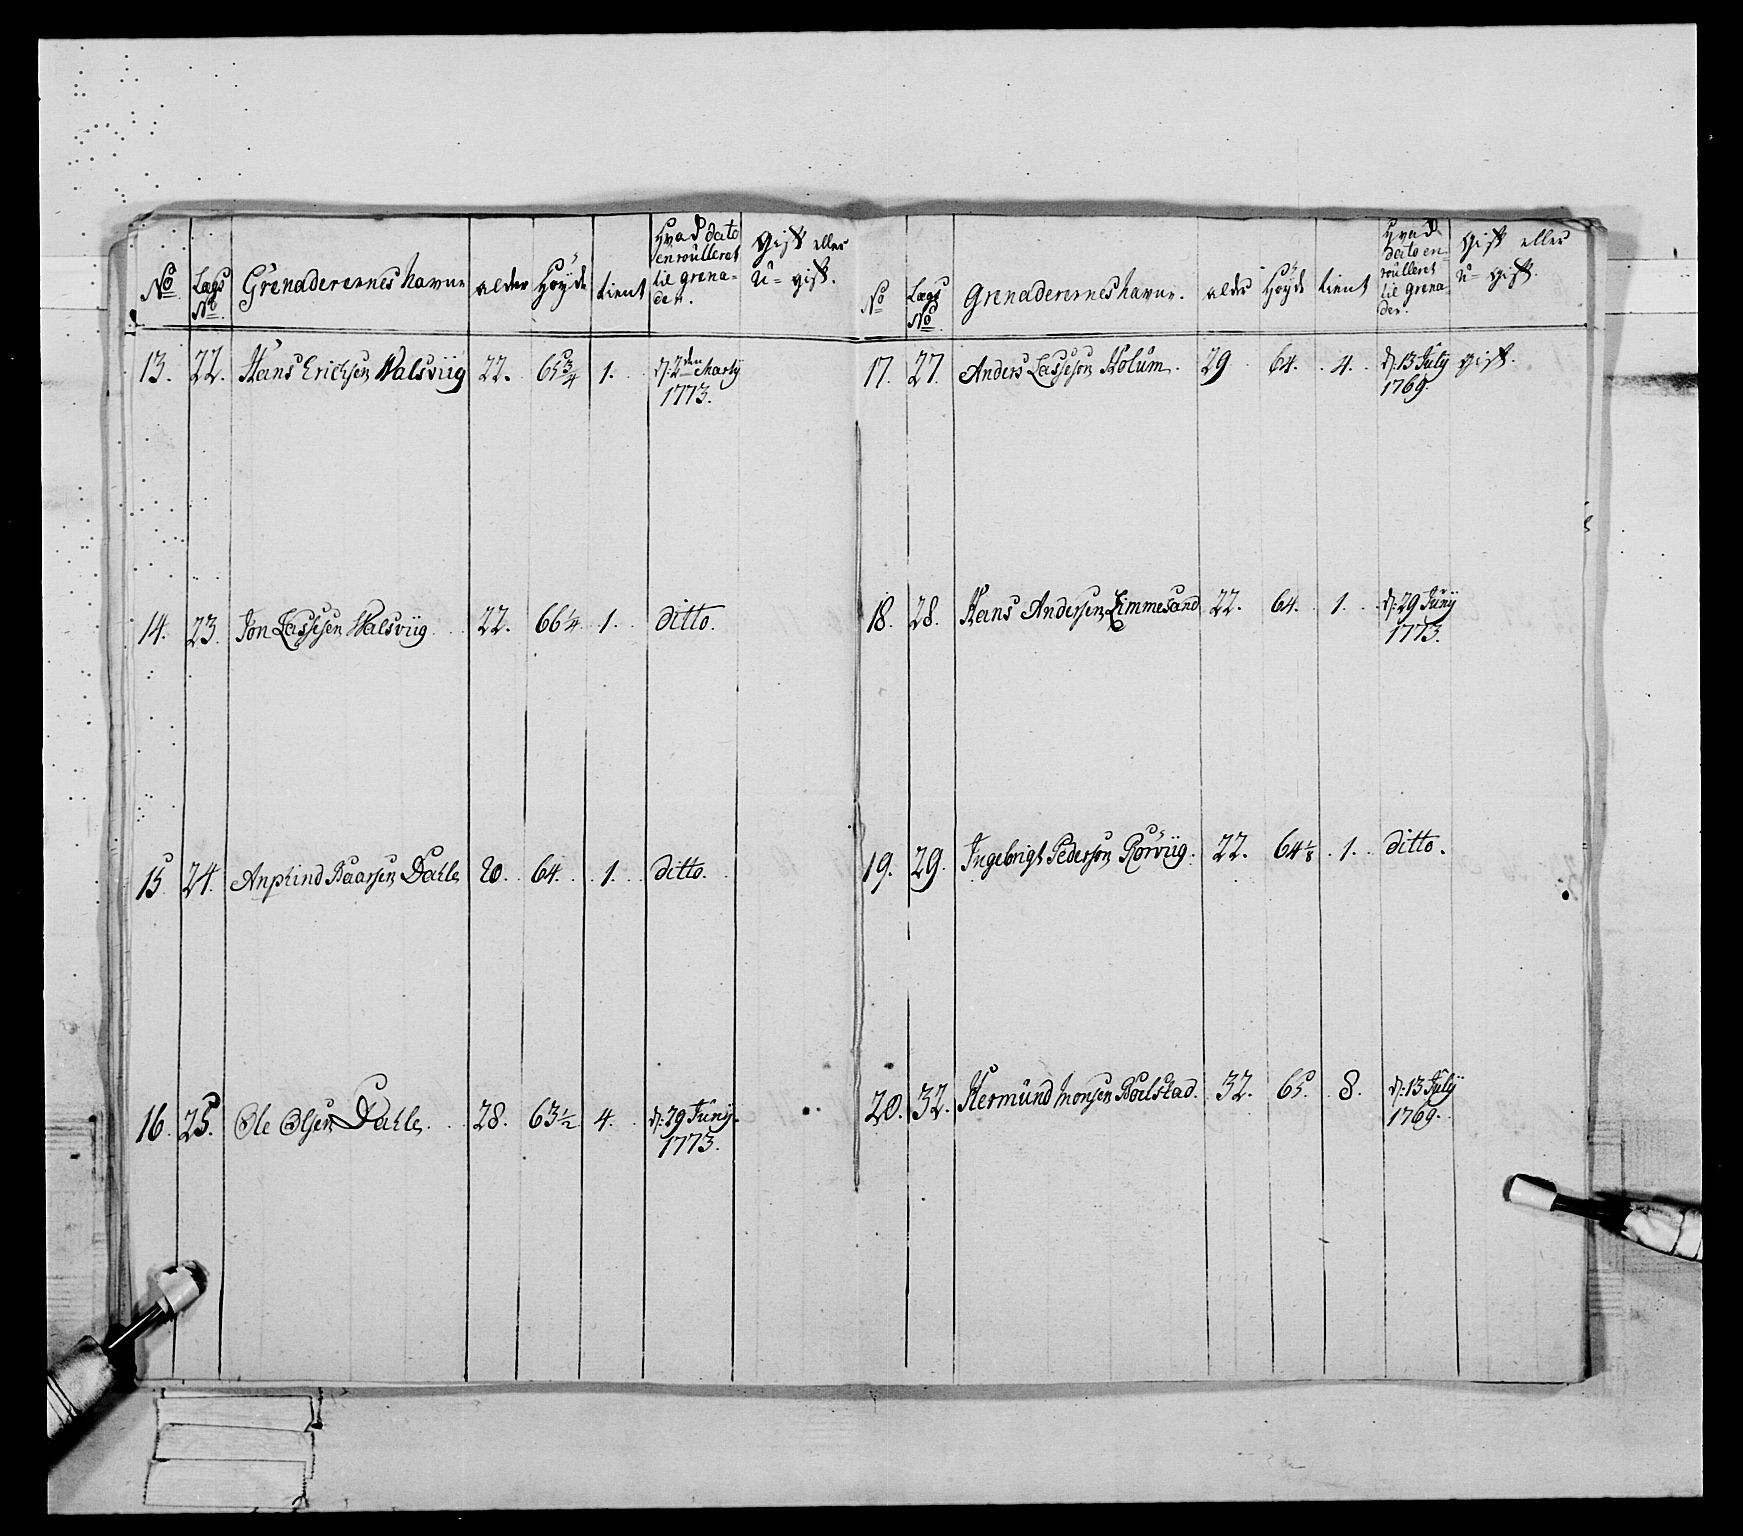 No
Lægs No
Grenaderernes havne
alder
Høyde
tient
Hvad dato enroulleret til grenader.
Gift eller u-gift.
13. 22. Hans Erichsen Walsviig 22. 65 3/4 1. d: 2den Marty 1773.
14. 23. Jon Lassesen Walsviig 22. 66 1/4 1. ditto.
15. 24. Baarsen Dahle 20. 64. 1. ditto.
16. 25. Ole Olsen Dahle. 28. 63 1/2 4. d: 29 Juny 1773.
No
Lægs No
Grenaderernes havne.
alder
Høyde
tient
Hvad dato enroulleret til grenader.
Gift eller u-gift.
17. 27. Anders Lasseson Holum. 29 64. 4. d: 13 July 1769. gift.
18. 28. Hans Andersen Limmesand 22. 64. 1. d: 29 Juny 1773.
19. 29. Ingebrigt Pederson Rørviig. 22. 64 1/8 1. ditto.
20. 32. Hermund Monsen 32. 65. 8. d: 13 July 1769.